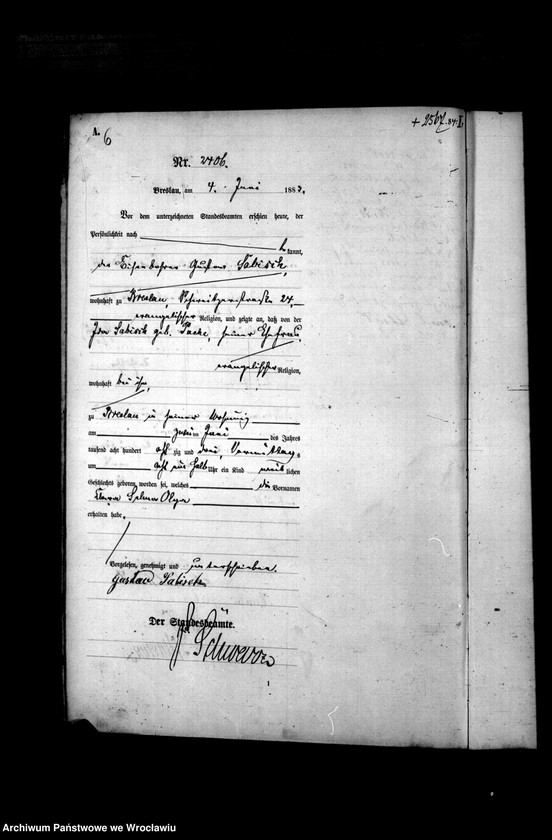 A.
6
+ 2567. 84. I.
Nr. 2406.
Breslau, am 4. Juni 1883.
Vor dem unterzeichneten Standesbeamten erschien heute, der
Persönlichkeit nach
kannt,
der Gustav Sabisch,
wohnhaft zu Breslau, 24,
evangelischer Religion, und zeigte an, daß von der
Sabisch geb. seiner Ehefrau,
evangelischer Religion,
wohnhaft bei ihm,
zu Breslau in seiner Wohnung
am zwei Juni des Jahres
tausend acht hundert achtzig und drei, Vormittags
um acht ein halb Uhr ein Kind weiblichen
Geschlechts geboren worden sei, welches die Vornamen
Selma Olga
erhalten habe.
Vorgelesen, genehmigt und unterschrieben.
Gustav Sabisch
Der Standesbeamte.
1
Archiwum Państwowe we Wrocławiu